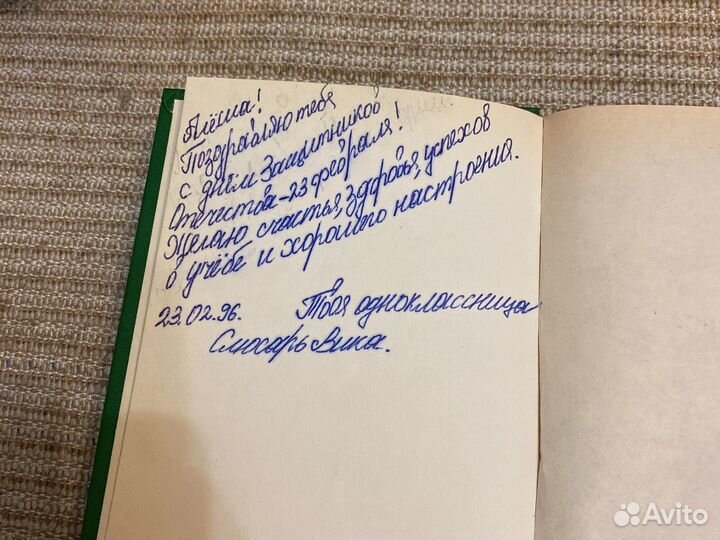 Алёша!
Поздравляю тебя
с днём Защитников
Отечества - 23 февраля!
Желаю счастья, здоровья, успехов
в учёбе и хорошего настроения.
23.02.96. Твоя одноклассница
Слюсарь Вика.
Avito